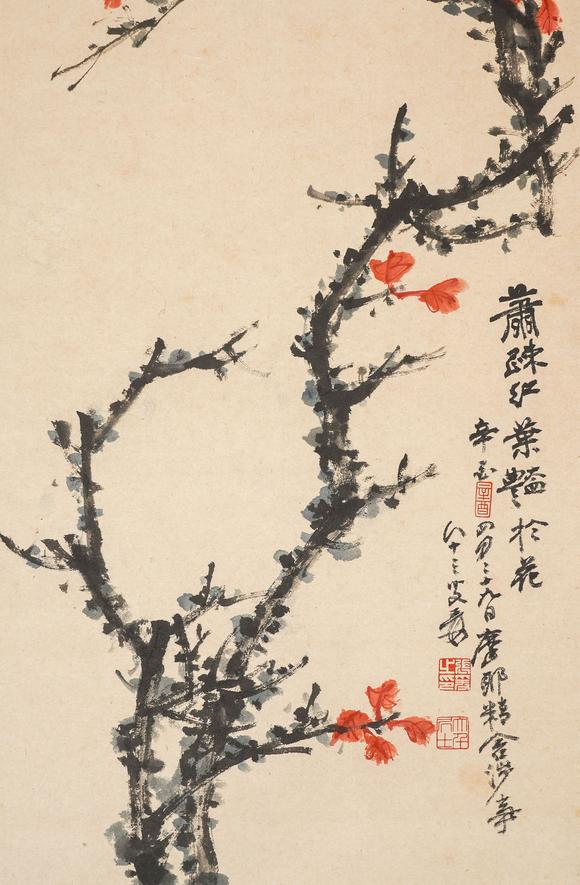 蕭疎紅葉豔於花
辛酉四月二十九日摩耶精舍涉事
八十三叟爰
辛酉
張爰之印
大千居士